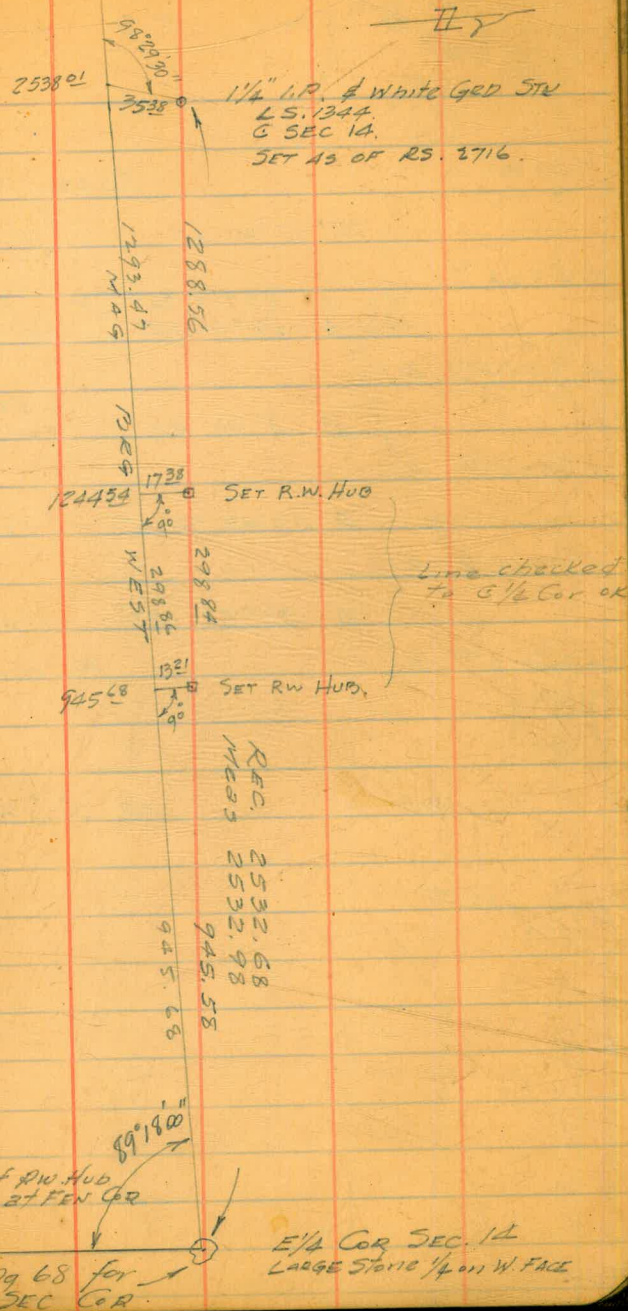 98°29'30"
2538 01
35 38
1 1/4" I.P. & White GRD STK
LS. 1344
C SEC 14.
SET AS OF RS. 2716.
1288.56
1293.47
MAG BRG WEST
17 38
1244 54
90°
SET R.W. HUB
298 84
298 86
Line checked
to C 1/4 Cor OK
13 21
945 68
90°
SET RW HUB.
REC. 2532.68
Meas 2532.98
945.58
945.68
89°18'00"
RW HUB
at FEN COR
E 1/4 COR SEC. 14
LARGE Stone 1/4 on W. FACE
Pg 68 for
SEC COR.